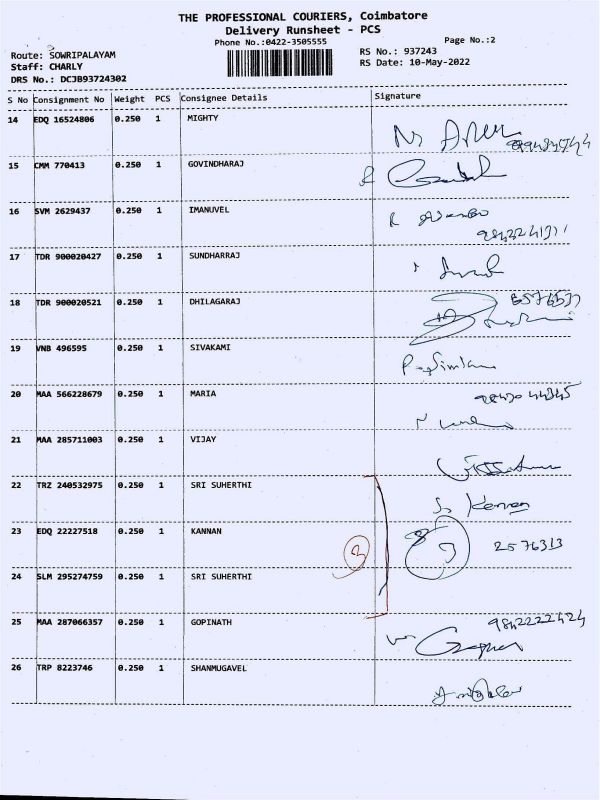 THE PROFESSIONAL COURIERS, Coimbatore
Delivery Runsheet - PCS
Phone No.:0422-3505555
Page No.:2
Route: SOWRIPALAYAM
RS No.: 937243
Staff: CHARLY
RS Date: 10-May-2022
DRS No.: DCJB93724302
S No Consignment No Weight PCS Consignee Details Signature
14 EDQ 16524806 0.250 1 MIGHTY
15 CMM 770413 0.250 1 GOVINDHARAJ
16 SVM 2629437 0.250 1 IMANUVEL
17 TDR 900020427 0.250 1 SUNDHARRAJ
18 TDR 900020521 0.250 1 DHILAGARAJ
19 VNB 496595 0.250 1 SIVAKAMI
20 MAA 566228679 0.250 1 MARIA
21 MAA 285711003 0.250 1 VIJAY
22 TRZ 240532975 0.250 1 SRI SUHERTHI
23 EDQ 22227518 0.250 1 KANNAN 3 2576313
24 SLM 295274759 0.250 1 SRI SUHERTHI
25 MAA 287066357 0.250 1 GOPINATH 9842222424
26 TRP 8223746 0.250 1 SHANMUGAVEL